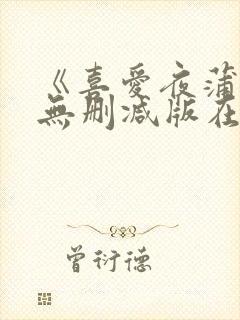 《喜愛夜蒲
無刪減版在
曾衍德